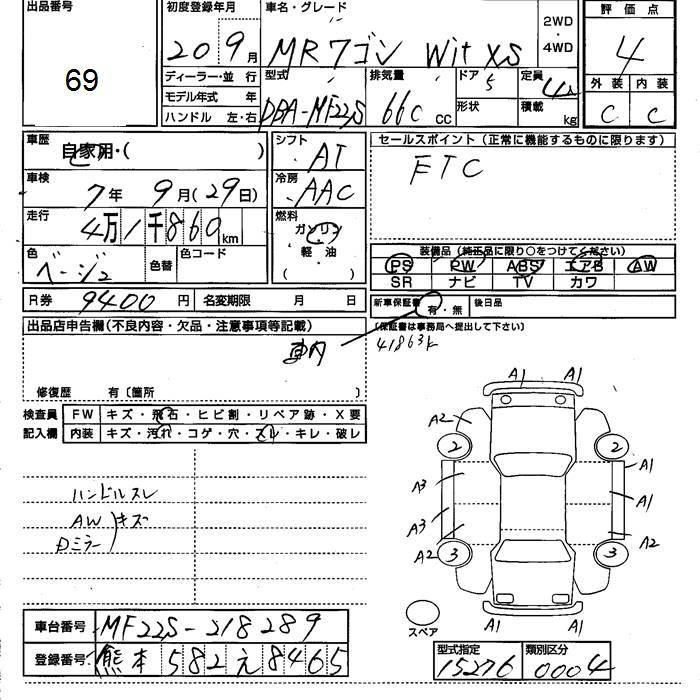 出品番号
69
初度登録年月
20 9月
車名・グレード
MRワゴン Wit XS
2WD
・
4WD
評価点
4
外装 内装
C C
ディーラー・並 行
モデル年式 年
ハンドル 左・右
型式
DBA-MF22S
排気量
660 cc
ドア
5
形状
定員
4人
積載
kg
車歴
自家用・( )
シフト
AT
車検
7年 9月(29日)
冷房
AAC
走行
4万1千860km
燃料
ガソリン
・
軽・油
( )
色
ベージュ
色替
色コード
セールスポイント(正常に機能するものに限ります)
ETC
装備品(純正品に限り○をつけてください)
PS PW ABS エアB AW
SR ナビ TV カワ
R券 9400 円
名変期限 月 日
新車保証書
有・無
後日品
(保証書は事務局へ提出して下さい)
41863k
出品店申告欄(不良内容・欠品・注意事項等記載)
車内
修復歴 有〔箇所 〕
検査員 FW キズ・飛石・ヒビ割・リペア跡・X要
記入欄 内装 キズ・汚れ・コゲ・穴・スレ・キレ・破レ
A1 A1
A2
2 2
A3 A1
A1
A3
A2 A2
3 3
スペア
A1 A1
ハンドルスレ
AW
Dミラー
キズ
車台番号 MF22S-218289
登録番号 熊本 582 え 8465
型式指定
15276
類別区分
0004